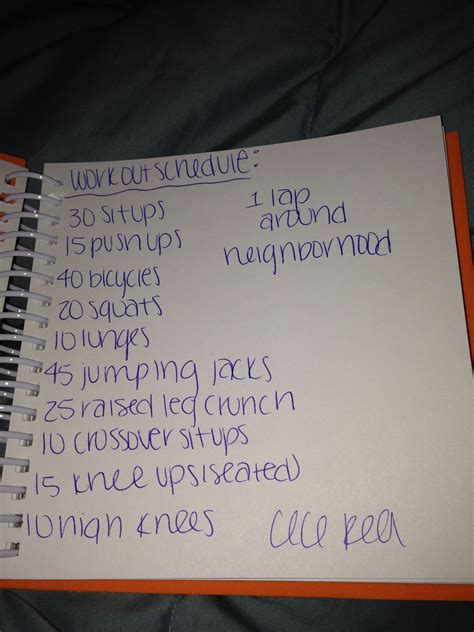 workout schedule:
30 situps
15 push ups
40 bicycles
20 squats
10 lunges
45 jumping jacks
25 raised leg crunch
10 crossover situps
15 knee ups (seated)
10 high knees
1 lap
around
neighborhood